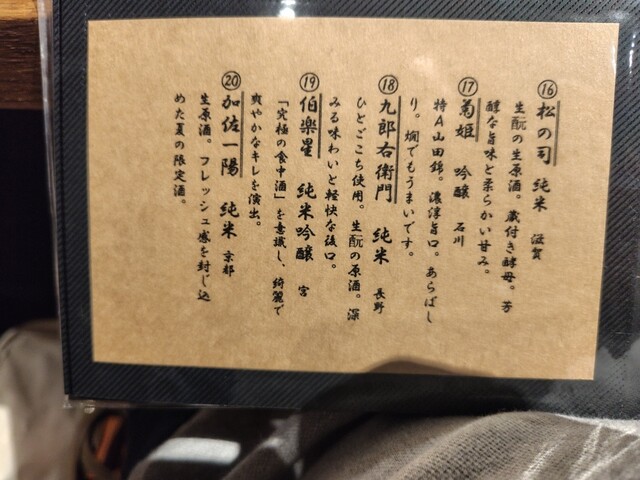 ⑯ 松の司 純米 滋賀
生酛の生原酒。蔵付き酵母。芳
醇な旨味と柔らかい甘み。
⑰ 菊姫 吟醸 石川
特A山田錦。濃淳旨口。あらばし
り。燗でもうまいです。
⑱ 九郎右衛門 純米 長野
ひとごこち使用。生酛の原酒。深
みる味わいと軽快な後口。
⑲ 伯楽星 純米吟醸 宮
「究極の食中酒」を意識し、綺麗で
爽やかなキレを演出。
⑳ 加佐一陽 純米 京都
生原酒。フレッシュ感を封じ込
めた夏の限定酒。